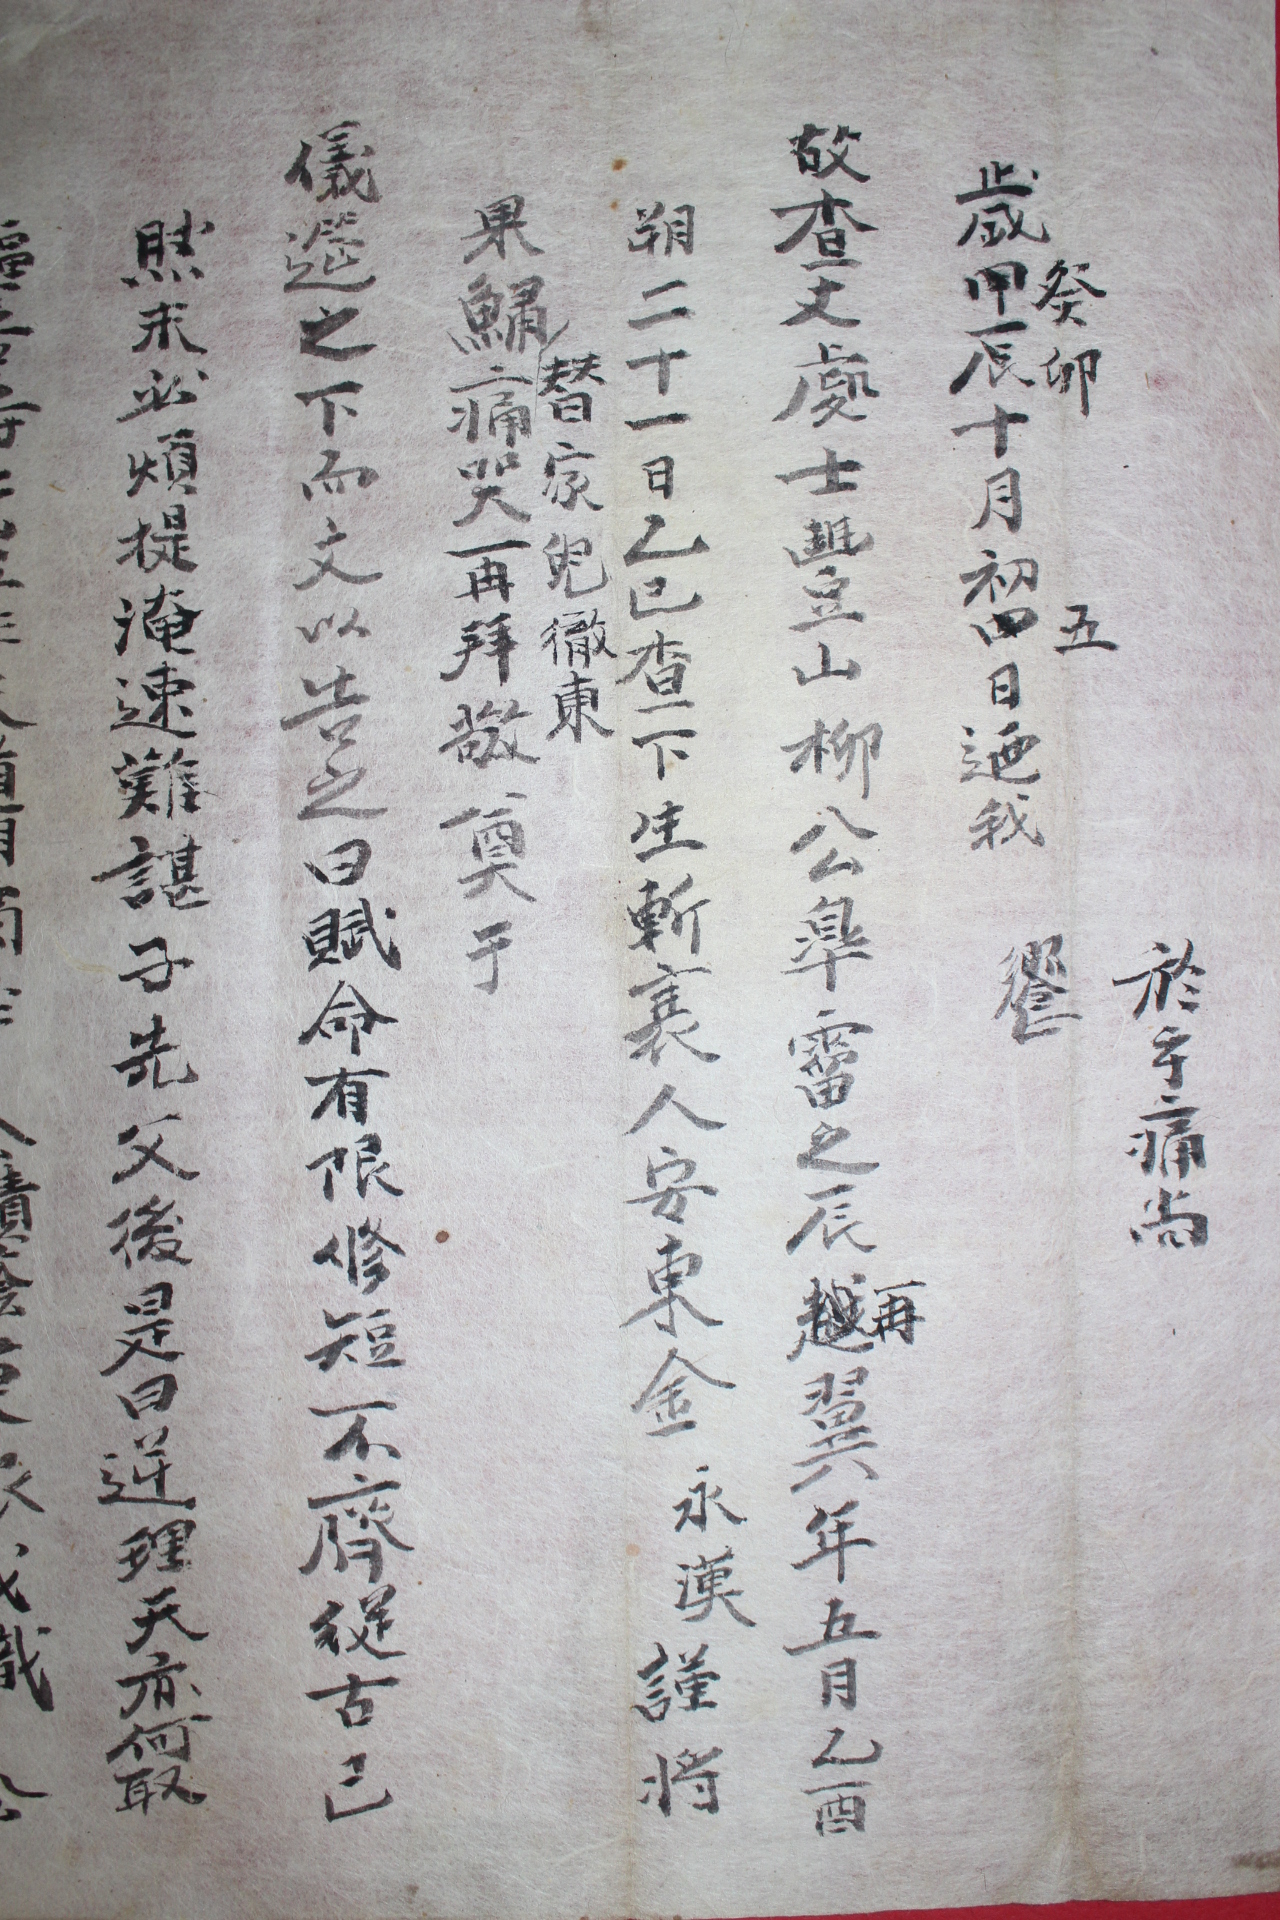 於乎痛尚
饗
癸卯
五
歲甲辰十月初四日迺我
再
故查丈處士豐山柳公皐𤲸之辰越翼六年五月乙酉
朔二十一日乙巳查下生斬衰人安東金永漢謹將
替家兒徹東
果鱐痛哭再拜敬奠于
儀筵之下而文以告之曰賦命有限修短不齊從古已
然未必煩提淹速難諶子先父後是曰逆理天亦何取